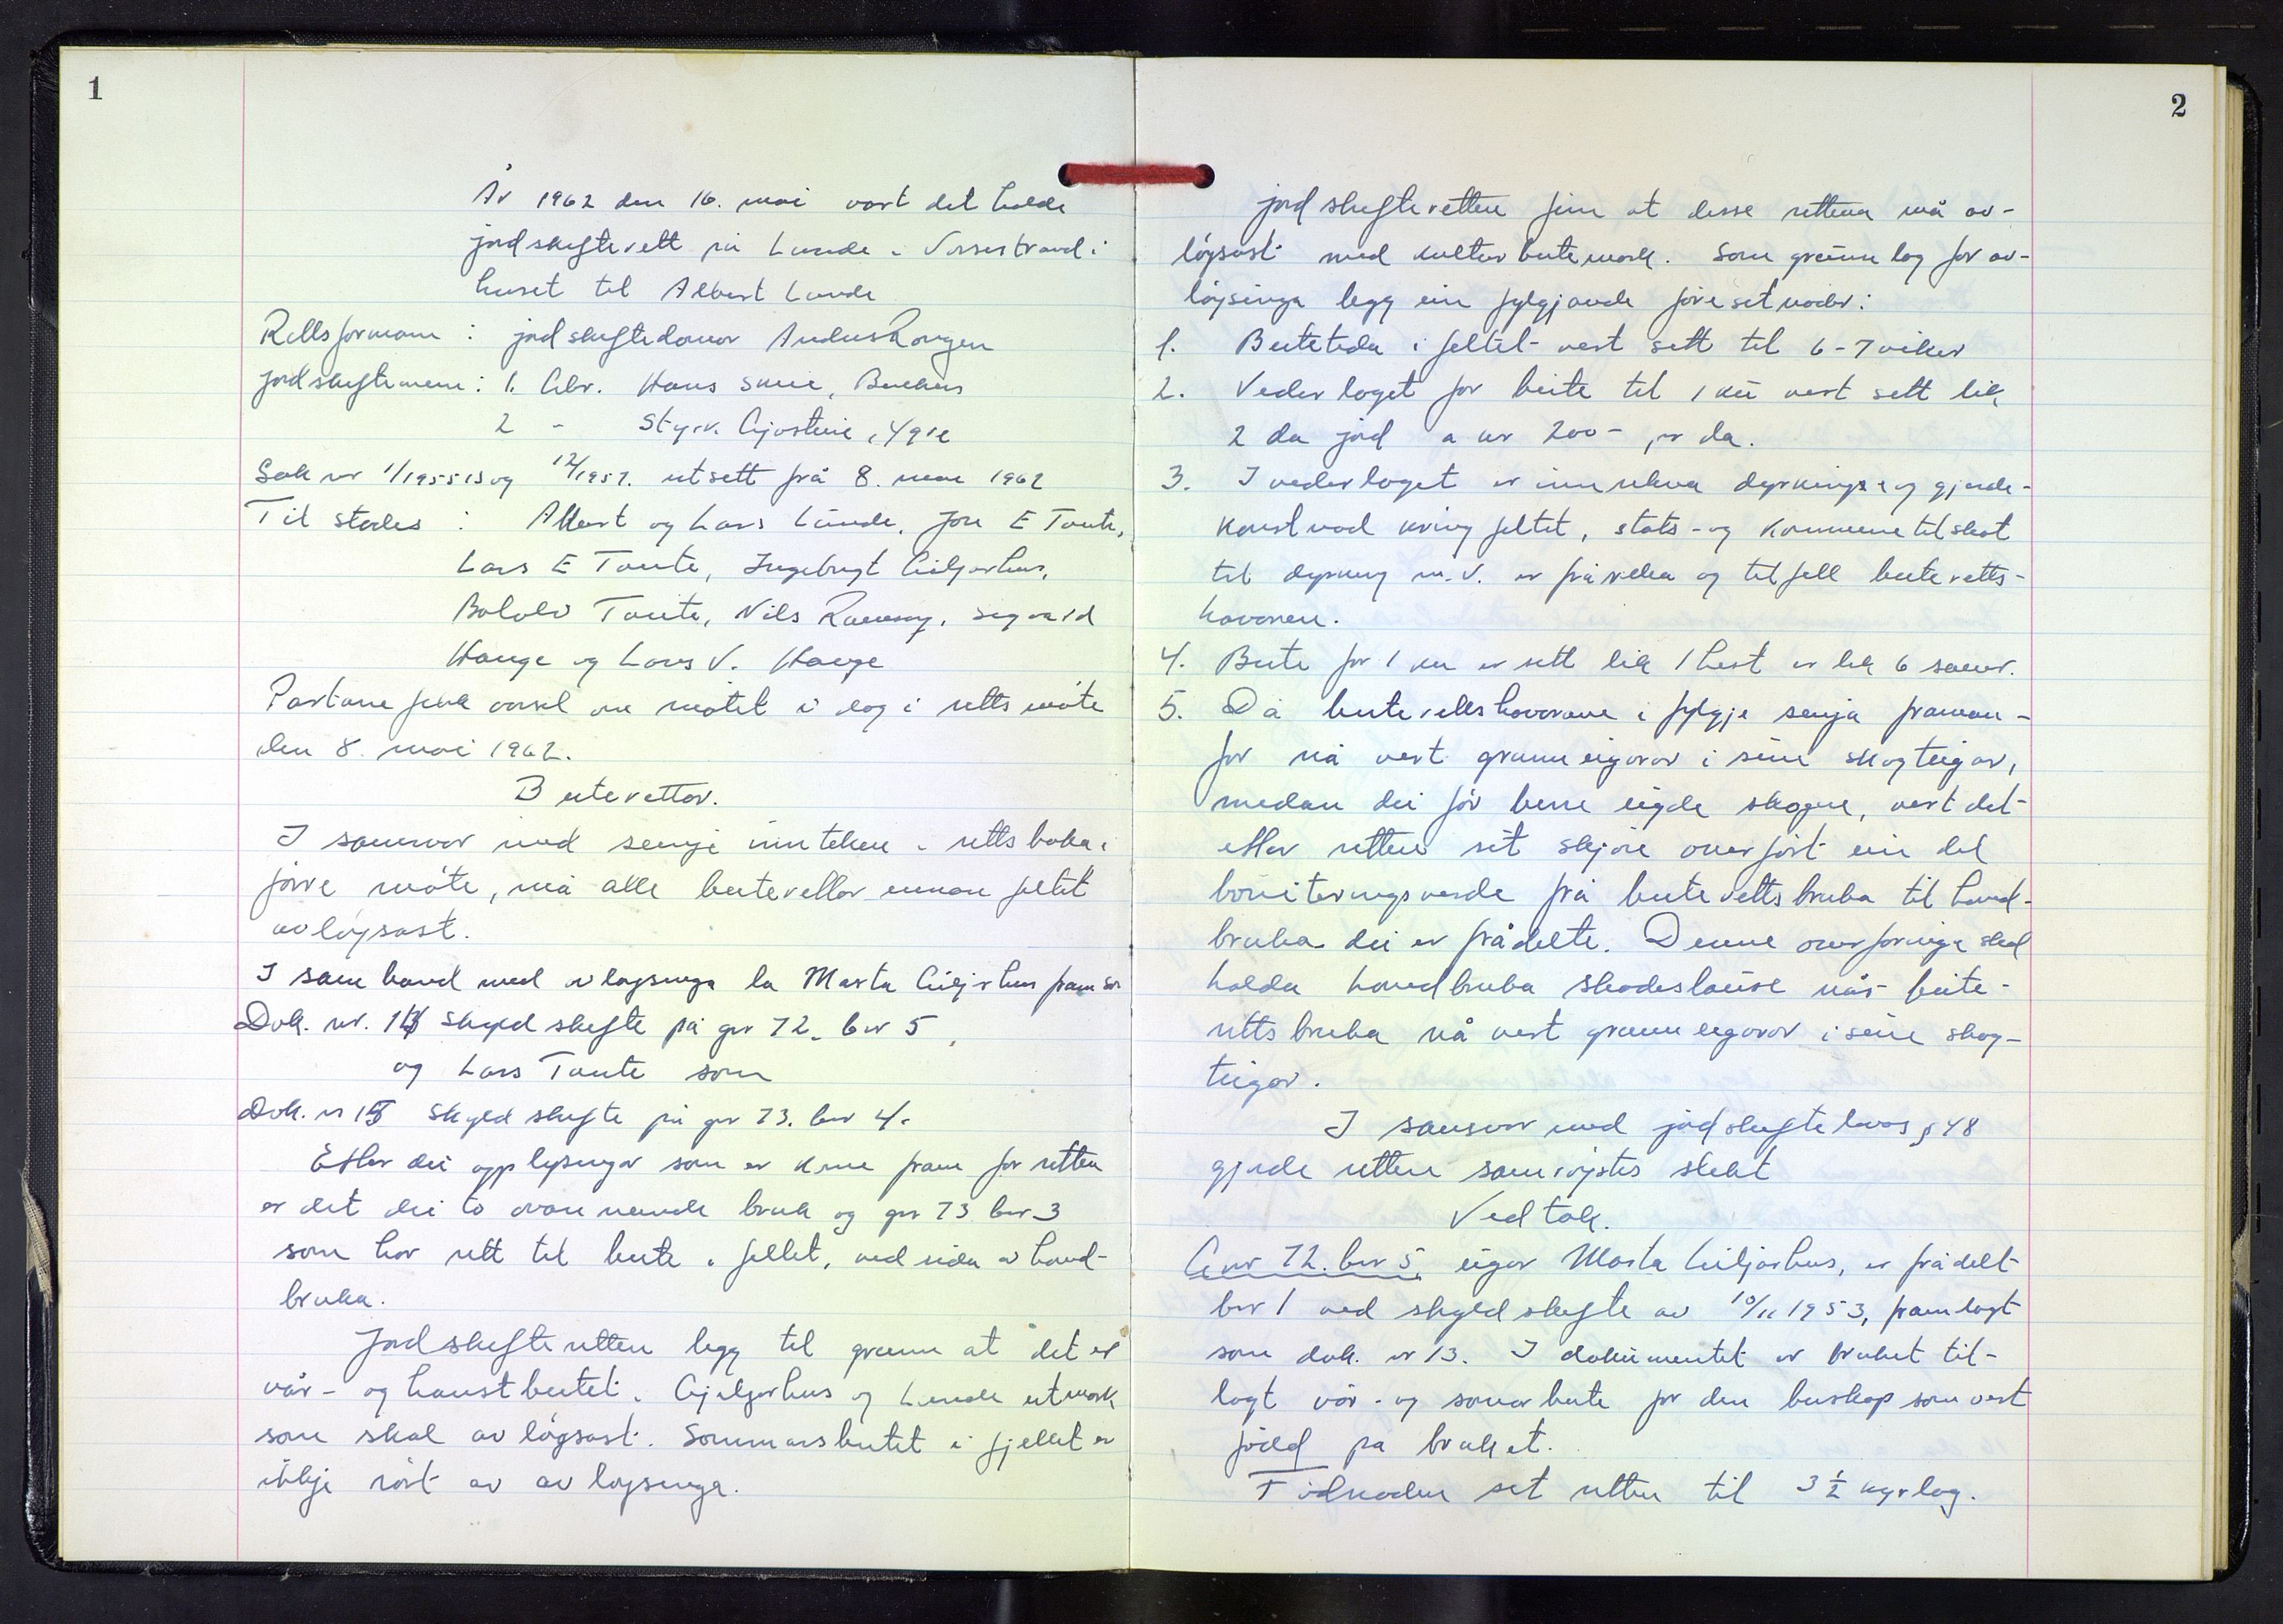 1
År 1962 den 16. mai vart det halde
jordskifterett på Lunde i Vossestrand i
huset til Albert Lunde
Rettsformann : jordskiftedomar Anders Rongen
Jordskiftemenn: 1. Gbr. Hans Smie,
2 - Styrk. Gjøstein,
Sak nr 1/1955 B og 12/1957. utsett frå 8. mai 1962
Til stades : Albert og Lars Lunde, Jon E Tunte,
Lars E Taute, Ingebrigt Giljarhus,
Taute, Nils Ramsøy, Sigvald
Hauge og Lars V. Hauge
Partane fekk varsel om møtet i dag i rettsmøte
den 8. mai 1962.
Beiterettar.
I samsvar med semje innteken i rettsboka i
førre møte, må alle beiterettar innan feltet
avløysast.
I samband med avløysinga la Marta Giljarhus fram som
Dok. nr. 13 Skyldskifte på gnr 72. bnr 5,
og Lars Taute som
Dok. nr 15 Skyldskifte på gnr 73. bnr 4.
Etter dei opplysningar som er kome fram for retten
er det dei to ovannemnde bruk og gnr 73 bnr 3
som har rett til beite i feltet, ved sida av hovud-
bruka.
Jordskifteretten legg til grunn at det er
vår- og haustbeitet i Giljarhus og Lunde utmark
som skal avløysast. Sommarsbeitet i fjellet er
ikkje rørt av avløysinga.
2
Jordskifteretten finn at desse rettane må av-
løysast med kulturbeitemark. Som grunnlag for av-
løysinga legg ein fylgjande føresetnader:
1. Beitetida i feltet vert sett til 6-7 veker
2. Vederlaget for beite til 1 ku vert sett lik
2 da jord a kr 200- pr da.
3. I vederlaget er innrekna dyrkings- og gjerde-
kostnad kring feltet, stats- og kommunetilskot
til dyrking m.v. er frårekna og tilfell beiteretts-
havaren.
4. Beite for 1 ku er sett lik 1 hest er lik 6 sauer.
5. Då beiterettshavarane i fylgje semja framan-
for nå vert grunneigarar i sine skogteigar,
medan dei før berre eigde skogen, vert det
etter retten sit skjøn overført ein del
boniteringsverde frå beiterettsbruka til hovud-
bruka dei er frådelte. Denne overføringa skal
halda hovudbruka skadeslause når beite-
rettsbruka nå vert grunneigarar i sine skog-
teigar.
I samsvar med jordskiftelovas § 48
gjorde retten samrøystes slikt
Vedtak.
Gnr 72. bnr 5, eigar Marta Giljarhus, er frådelt
bnr 1 ved skyldskifte av 10/11 1953, framlagt
som dok. nr 13. I dokumentet er bruket til-
lagt vår- og sommarbeite for den buskap som vert
fødd på bruket.
Fødnaden set retten til 3 1/2 kyrlag.